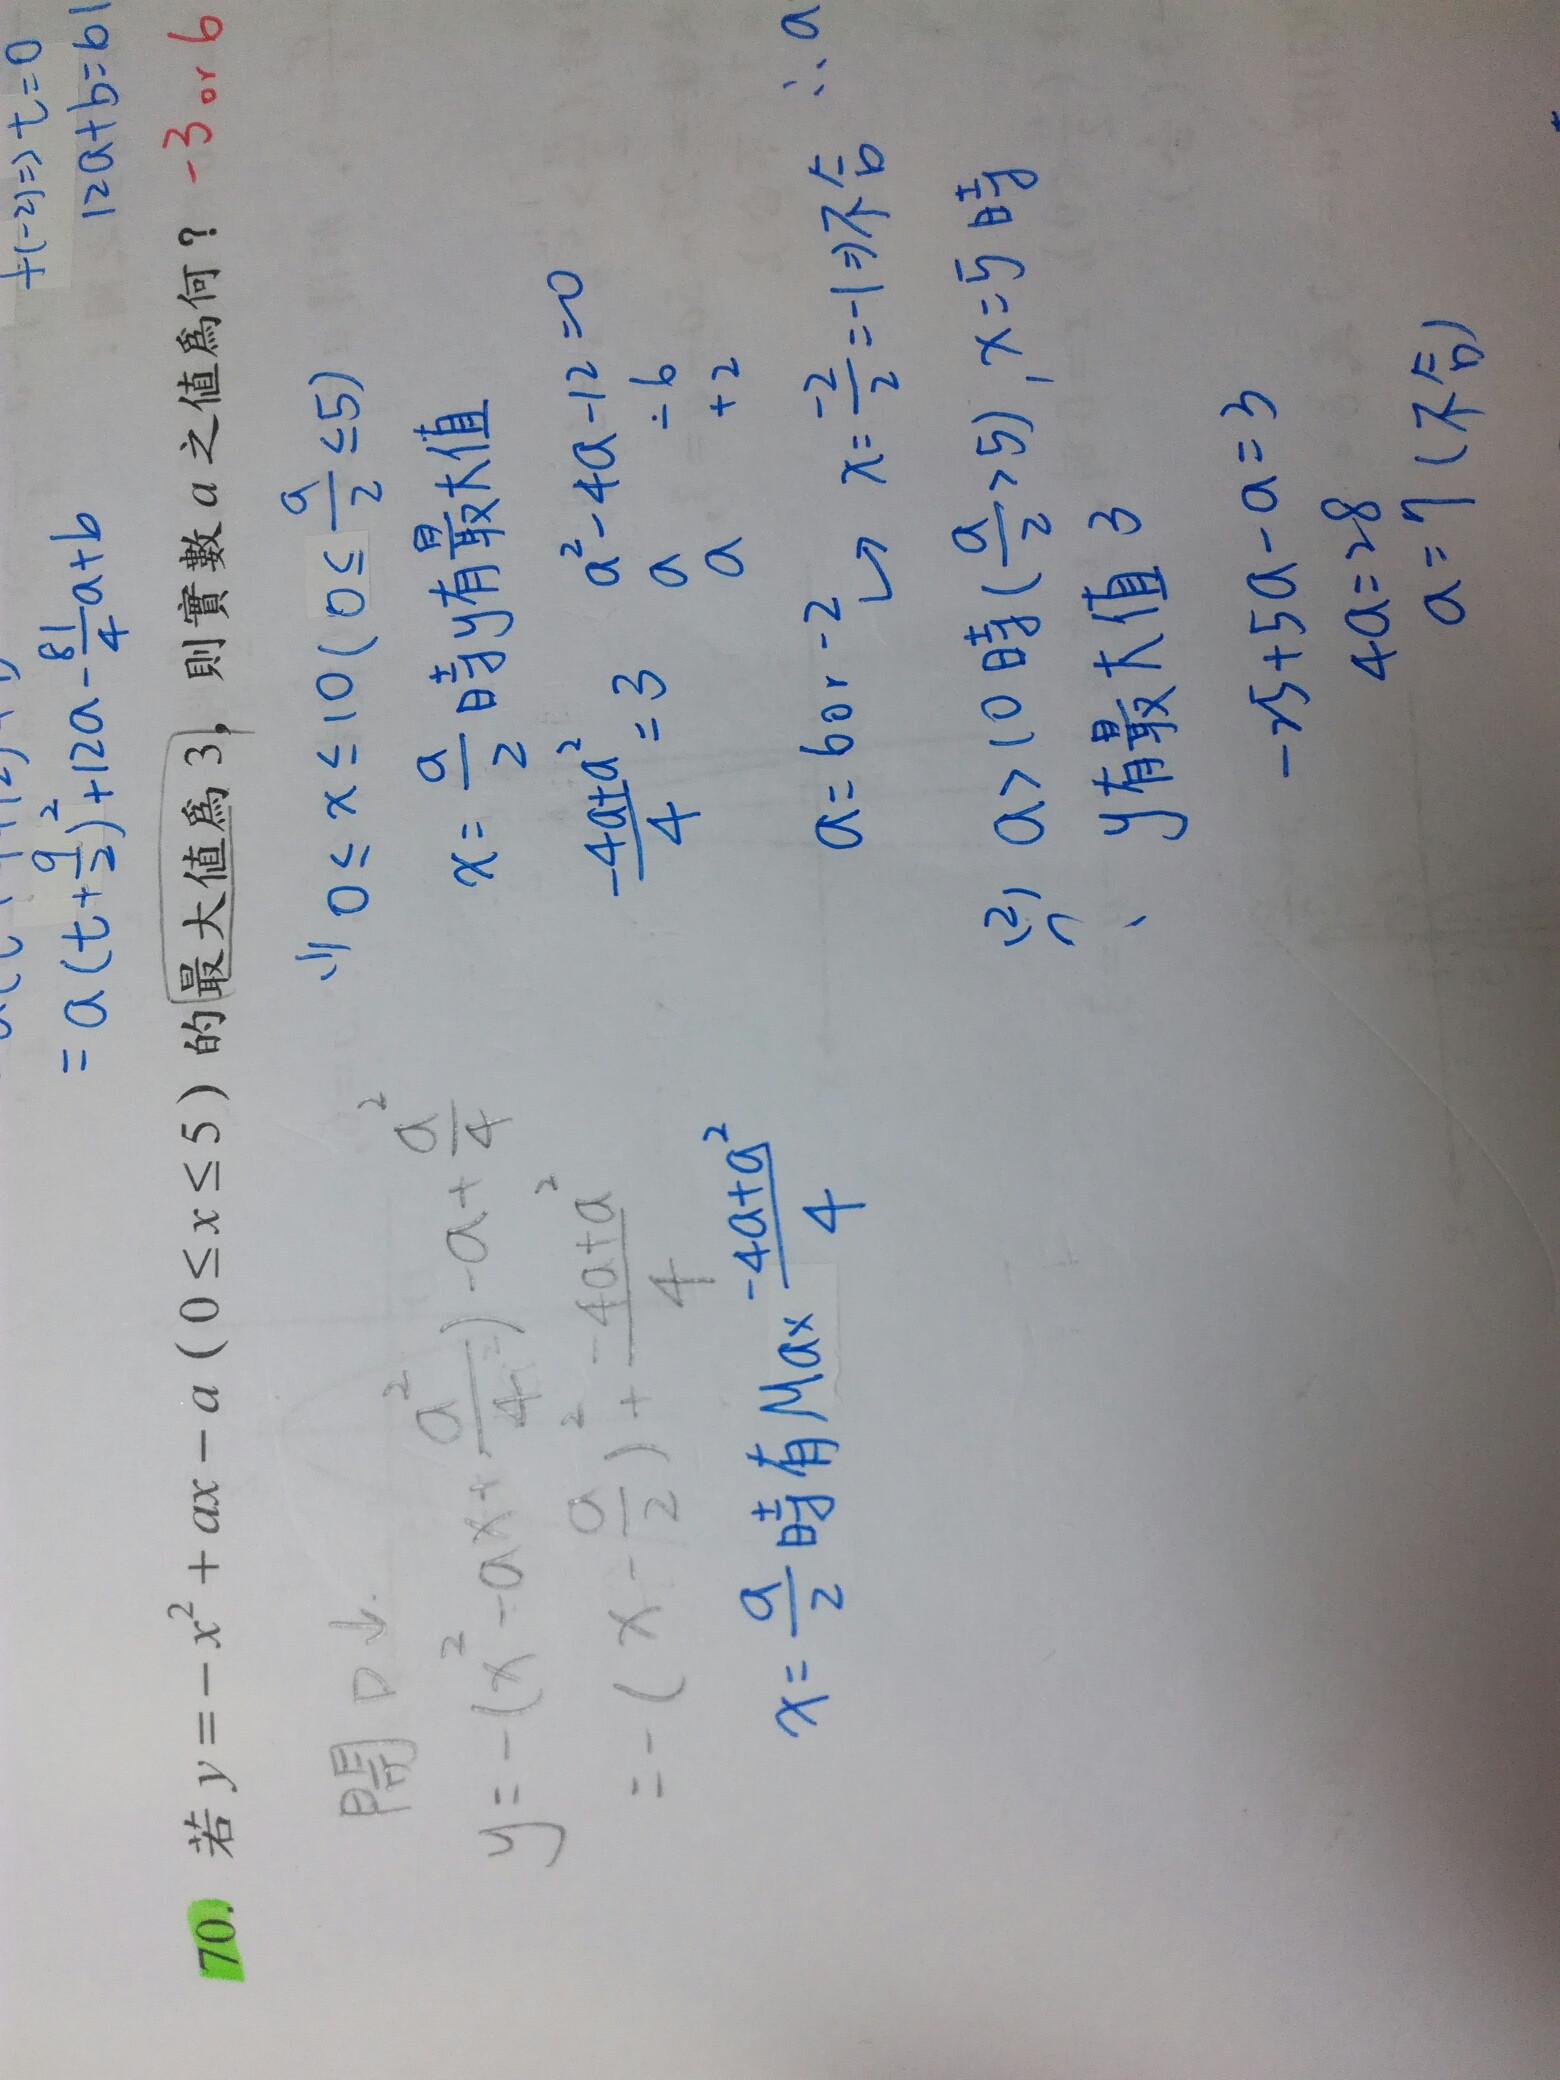 +(-2)=> t=0
12a+b=61
= a(t+9/2)²+12a-81/4a+b
70. 若 y=-x²+ax-a (0≤x≤5) 的最大值為 3，則實數 a 之值為何？ -3 or 6
開口↓.
y=-(x²-ax+a²/4)-a+a²/4
=-(x-a/2)²+(-4a+a²)/4
x=a/2 時有 Max (-4a+a²)/4
(1) 0≤x≤10 (0≤a/2≤5)
x=a/2 時 y有最大值
(-4a+a²)/4=3 a²-4a-12=0
a -6
a +2
a=6 or -2 ∴a
↳ x=-2/2=-1⇒不合
(2) a>10 時 (a/2>5), x=5 時
y有最大值 3
-25+5a-a=3
4a=28
a=7 (不合)